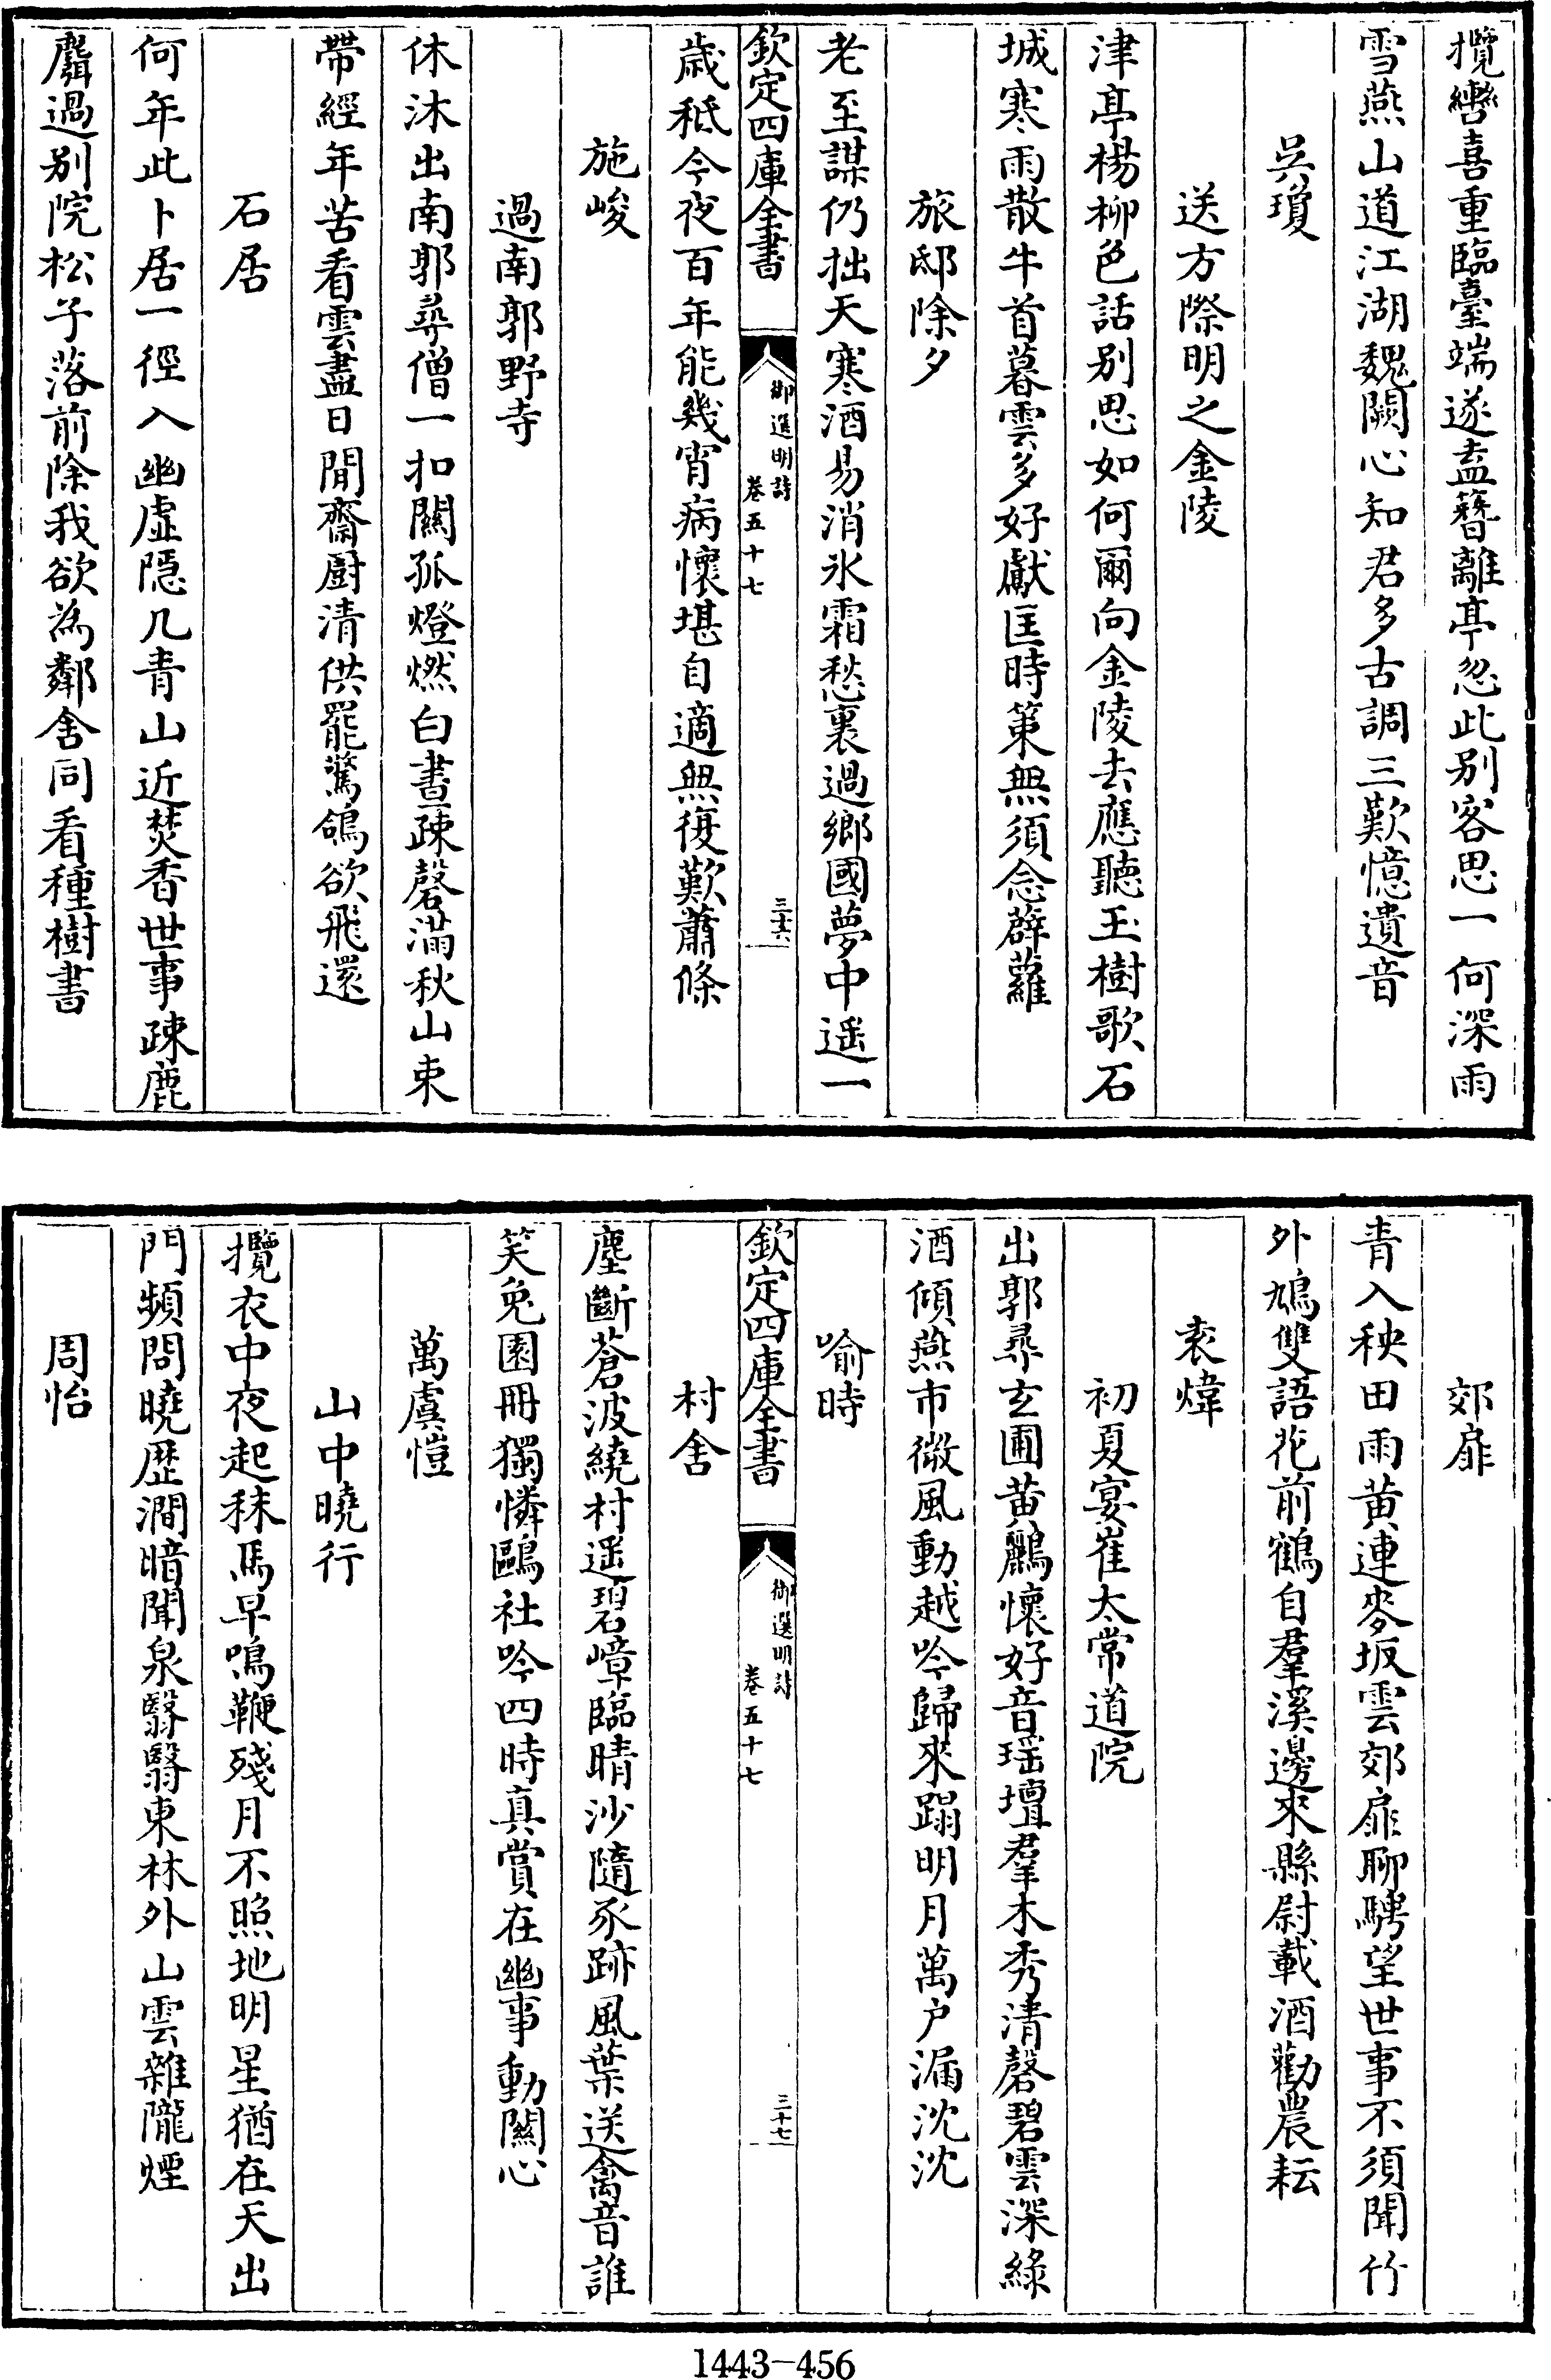 攬轡喜重臨臺端遂盍簪離亭忽此别客思一何深雨
雪燕山道江湖魏闕心知君多古調三歎憶遺音
吳瓊
送方際明之金陵
津亭楊柳色話别思如何爾向金陵去應聽玉樹歌石
城寒雨散牛首暮雲多好獻匡時策無須念薜蘿
旅邸除夕
老至謀仍拙天寒酒易消氷霜愁裏過鄉國夢中遥一
欽定四庫全書
御選明詩
卷五十七
三十六
歲秪今夜百年能幾宵病懷堪自適無復歎蕭條
施峻
過南郭野寺
休沐出南郭尋僧一扣關孤燈燃白晝疎磬滿秋山束
帶經年苦看雲盡日閒齋厨清供罷驚鴿欲飛還
石居
何年此卜居一徑入幽虛隠几青山近焚香世事疎鹿
麛過别院松子落前除我欲為鄰舍同看種樹書
郊扉
青入秧田雨黄連麥坂雲郊扉聊騁望世事不須聞竹
外鳩雙語花前鶴自羣溪邊來縣尉載酒勸農耘
袁煒
初夏宴崔太常道院
出郭尋玄圃黄鸝懷好音瑶壇羣木秀清磬碧雲深綠
酒傾燕市微風動越吟歸來蹋明月萬户漏沈沈
喻時
欽定四庫全書
御選明詩
卷五十七
三十七
村舍
塵斷蒼波繞村遥碧嶂臨晴沙隨豕跡風葉送禽音誰
笑兔園冊獨憐鷗社吟四時真賞在幽事動關心
萬虞愷
山中曉行
攬衣中夜起秣馬早鳴鞭殘月不照地明星猶在天出
門頻問曉歴澗暗聞泉翳翳東林外山雲雜隴煙
周怡
1443-456